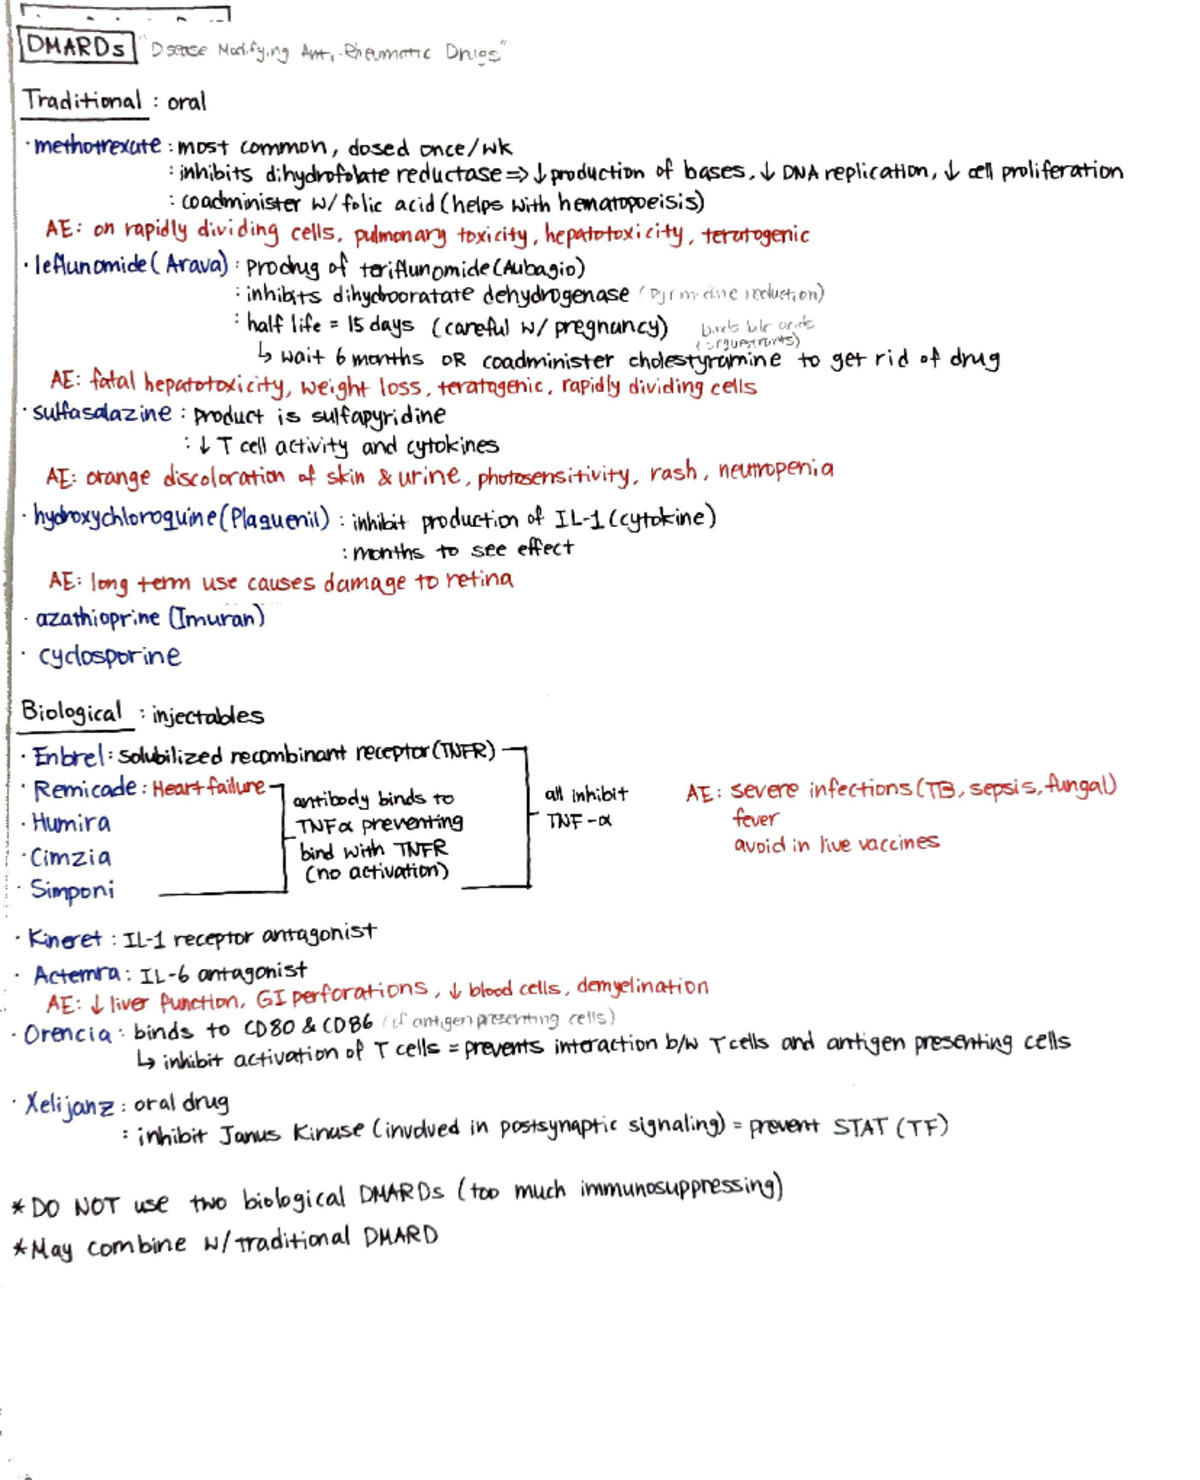 DMARDs "Disease Modifying Anti-Rheumatic Drugs"
Traditional : oral
· methotrexate : most common, dosed once/wk
: inhibits dihydrofolate reductase => ↓ production of bases, ↓ DNA replication, ↓ cell proliferation
: coadminister w/ folic acid (helps with hematopoeisis)
AE: on rapidly dividing cells, pulmonary toxicity, hepatotoxicity, teratogenic
· leflunomide (Arava) : prodrug of teriflunomide (Aubagio)
: inhibits dihydrooratate dehydrogenase (pyrimidine reduction)
: half life = 15 days (careful w/ pregnancy) binds bile acids
(sequestrants)
↳ wait 6 months OR coadminister cholestyramine to get rid of drug
AE: fatal hepatotoxicity, weight loss, teratogenic, rapidly dividing cells
· sulfasalazine : product is sulfapyridine
: ↓ T cell activity and cytokines
AE: orange discoloration of skin & urine, photosensitivity, rash, neutropenia
· hydroxychloroquine (Plaquenil) : inhibit production of IL-1 (cytokine)
: months to see effect
AE: long term use causes damage to retina
· azathioprine (Imuran)
· cyclosporine
Biological : injectables
· Enbrel : solubilized recombinant receptor (TNFR)
· Remicade : Heart failure
· Humira
· Cimzia
· Simponi
antibody binds to
TNFα preventing
bind with TNFR
(no activation)
all inhibit
TNF-α
AE: severe infections (TB, sepsis, fungal)
fever
avoid in live vaccines
· Kineret : IL-1 receptor antagonist
· Actemra : IL-6 antagonist
AE: ↓ liver function, GI perforations, ↓ blood cells, demyelination
· Orencia : binds to CD80 & CD86 (of antigen presenting cells)
↳ inhibit activation of T cells = prevents interaction b/w T cells and antigen presenting cells
· Xelijanz : oral drug
: inhibit Janus Kinase (involved in postsynaptic signaling) = prevent STAT (TF)
* DO NOT use two biological DMARDs (too much immunosuppressing)
* May combine w/ traditional DMARD